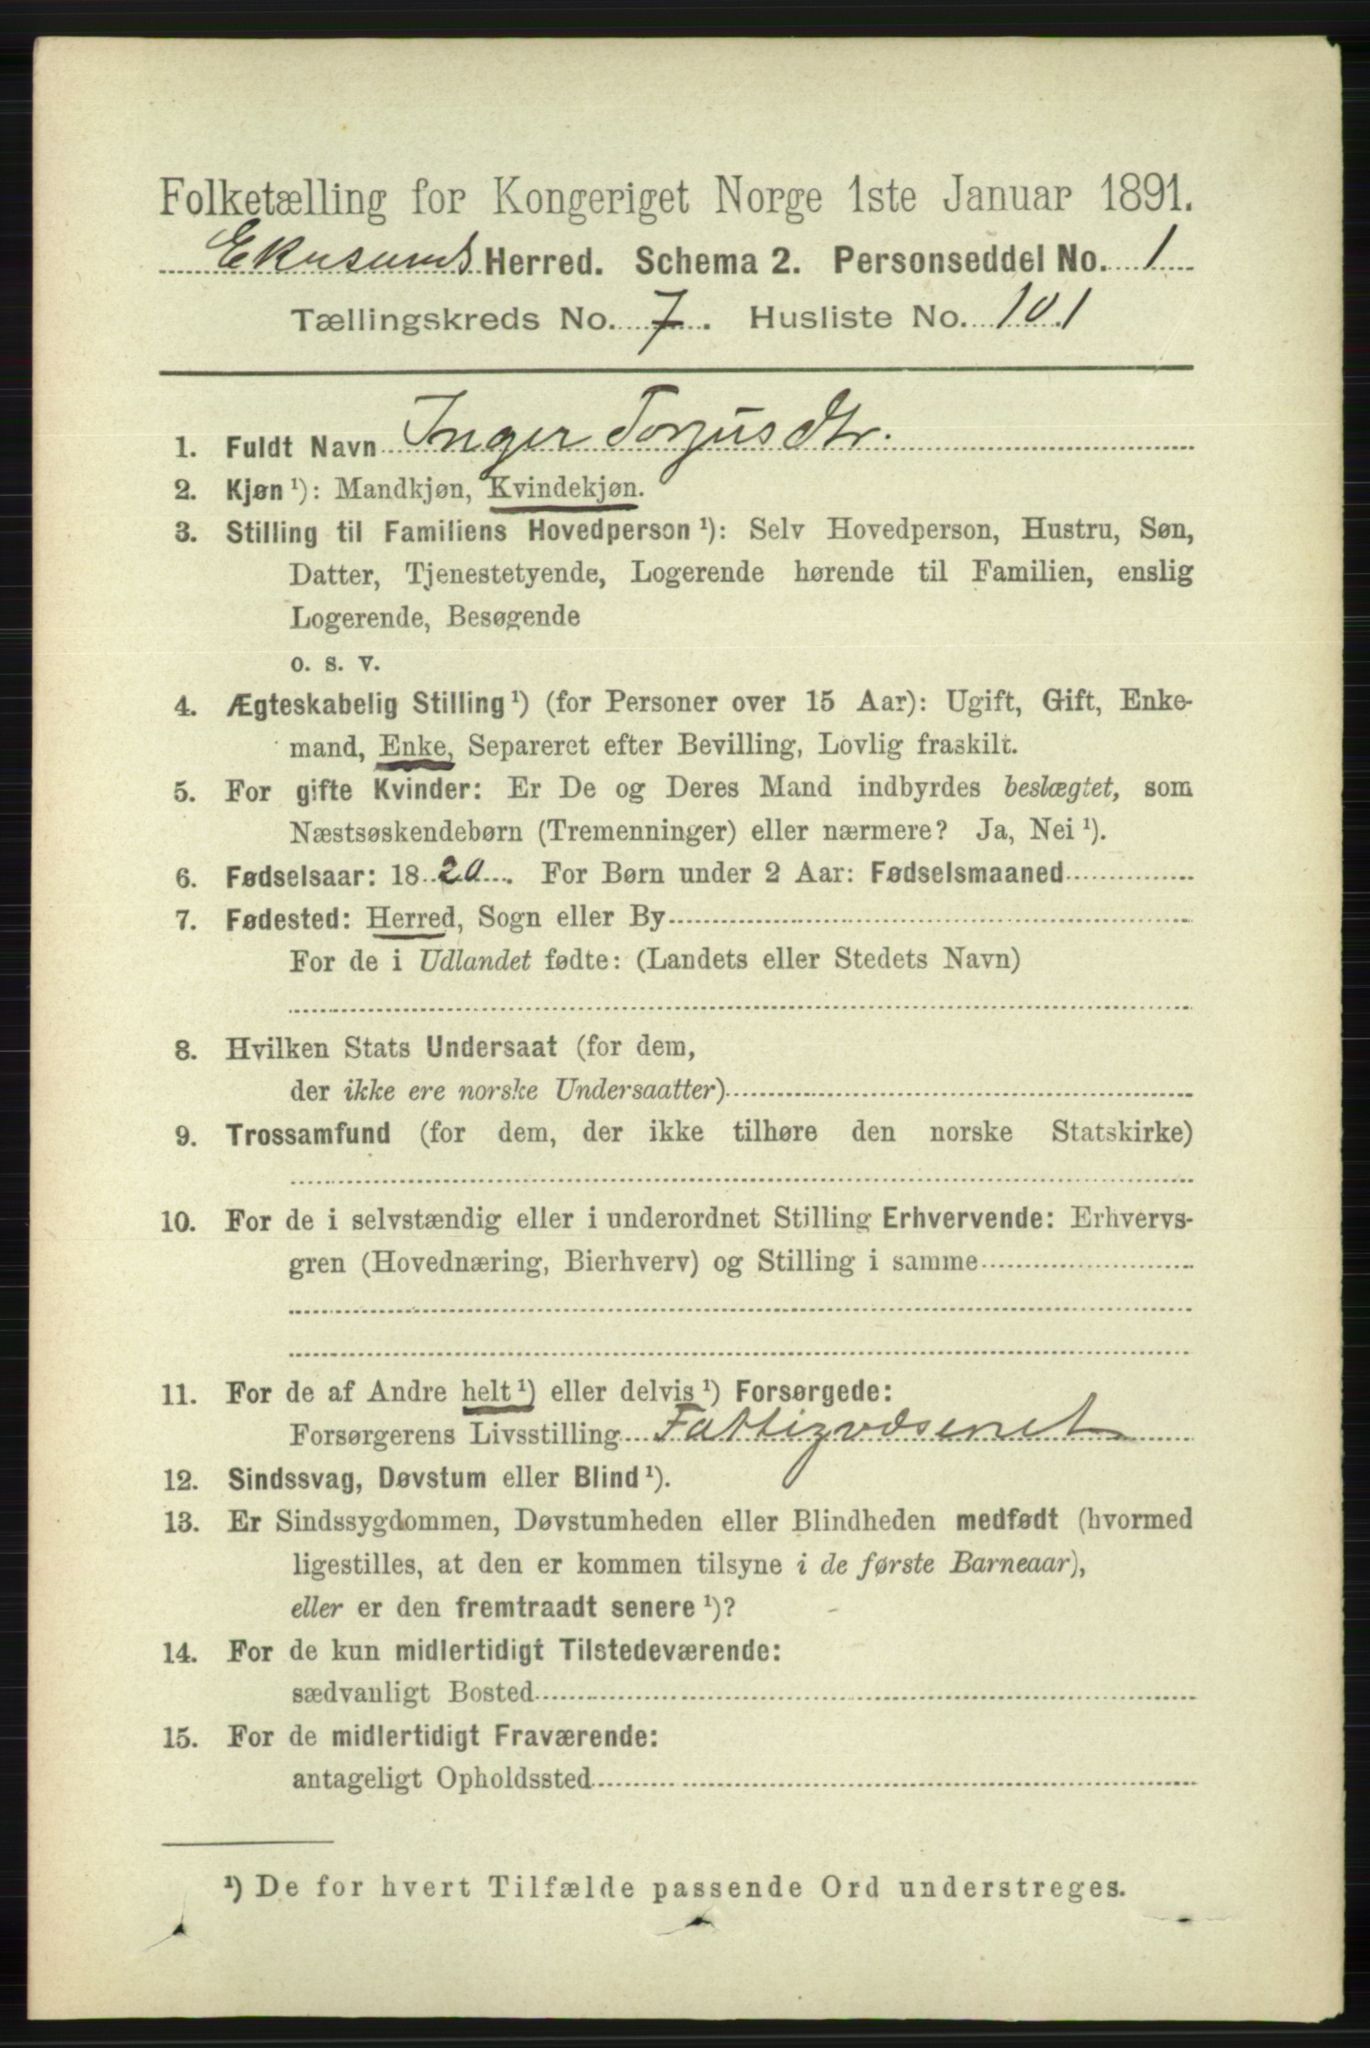 Folketælling for Kongeriget Norge 1ste Januar 1891.
Ekersunds Herred. Schema 2. Personseddel No. 1
Tællingskreds No. 7. Husliste No. 101
1. Fuldt Navn Inger Torjusdtr.
2. Kjøn ¹): Mandkjøn, Kvindekjøn.
3. Stilling til Familiens Hovedperson ¹): Selv Hovedperson, Hustru, Søn,
Datter, Tjenestetyende, Logerende hørende til Familien, enslig
Logerende, Besøgende
o. s. v.
4. Ægteskabelig Stilling ¹) (for Personer over 15 Aar): Ugift, Gift, Enke-
mand, Enke, Separeret efter Bevilling, Lovlig fraskilt.
5. For gifte Kvinder: Er De og Deres Mand indbyrdes beslægtet, som
Næstsøskendebørn (Tremenninger) eller nærmere? Ja, Nei ¹).
6. Fødselsaar: 1820. For Børn under 2 Aar: Fødselsmaaned
7. Fødested: Herred, Sogn eller By
For de i Udlandet fødte: (Landets eller Stedets Navn)
8. Hvilken Stats Undersaat (for dem,
der ikke ere norske Undersaatter)
9. Trossamfund (for dem, der ikke tilhøre den norske Statskirke)
10. For de i selvstændig eller i underordnet Stilling Erhvervende: Erhvervs-
gren (Hovednæring, Bierhverv) og Stilling i samme
11. For de af Andre helt ¹) eller delvis ¹) Forsørgede:
Forsørgerens Livsstilling Fattigvæsenet
12. Sindssvag, Døvstum eller Blind ¹).
13. Er Sindssygdommen, Døvstumheden eller Blindheden medfødt (hvormed
ligestilles, at den er kommen tilsyne i de første Barneaar),
eller er den fremtraadt senere ¹)?
14. For de kun midlertidigt Tilstedeværende:
sædvanligt Bosted
15. For de midlertidigt Fraværende:
antageligt Opholdssted
¹) De for hvert Tilfælde passende Ord understreges.